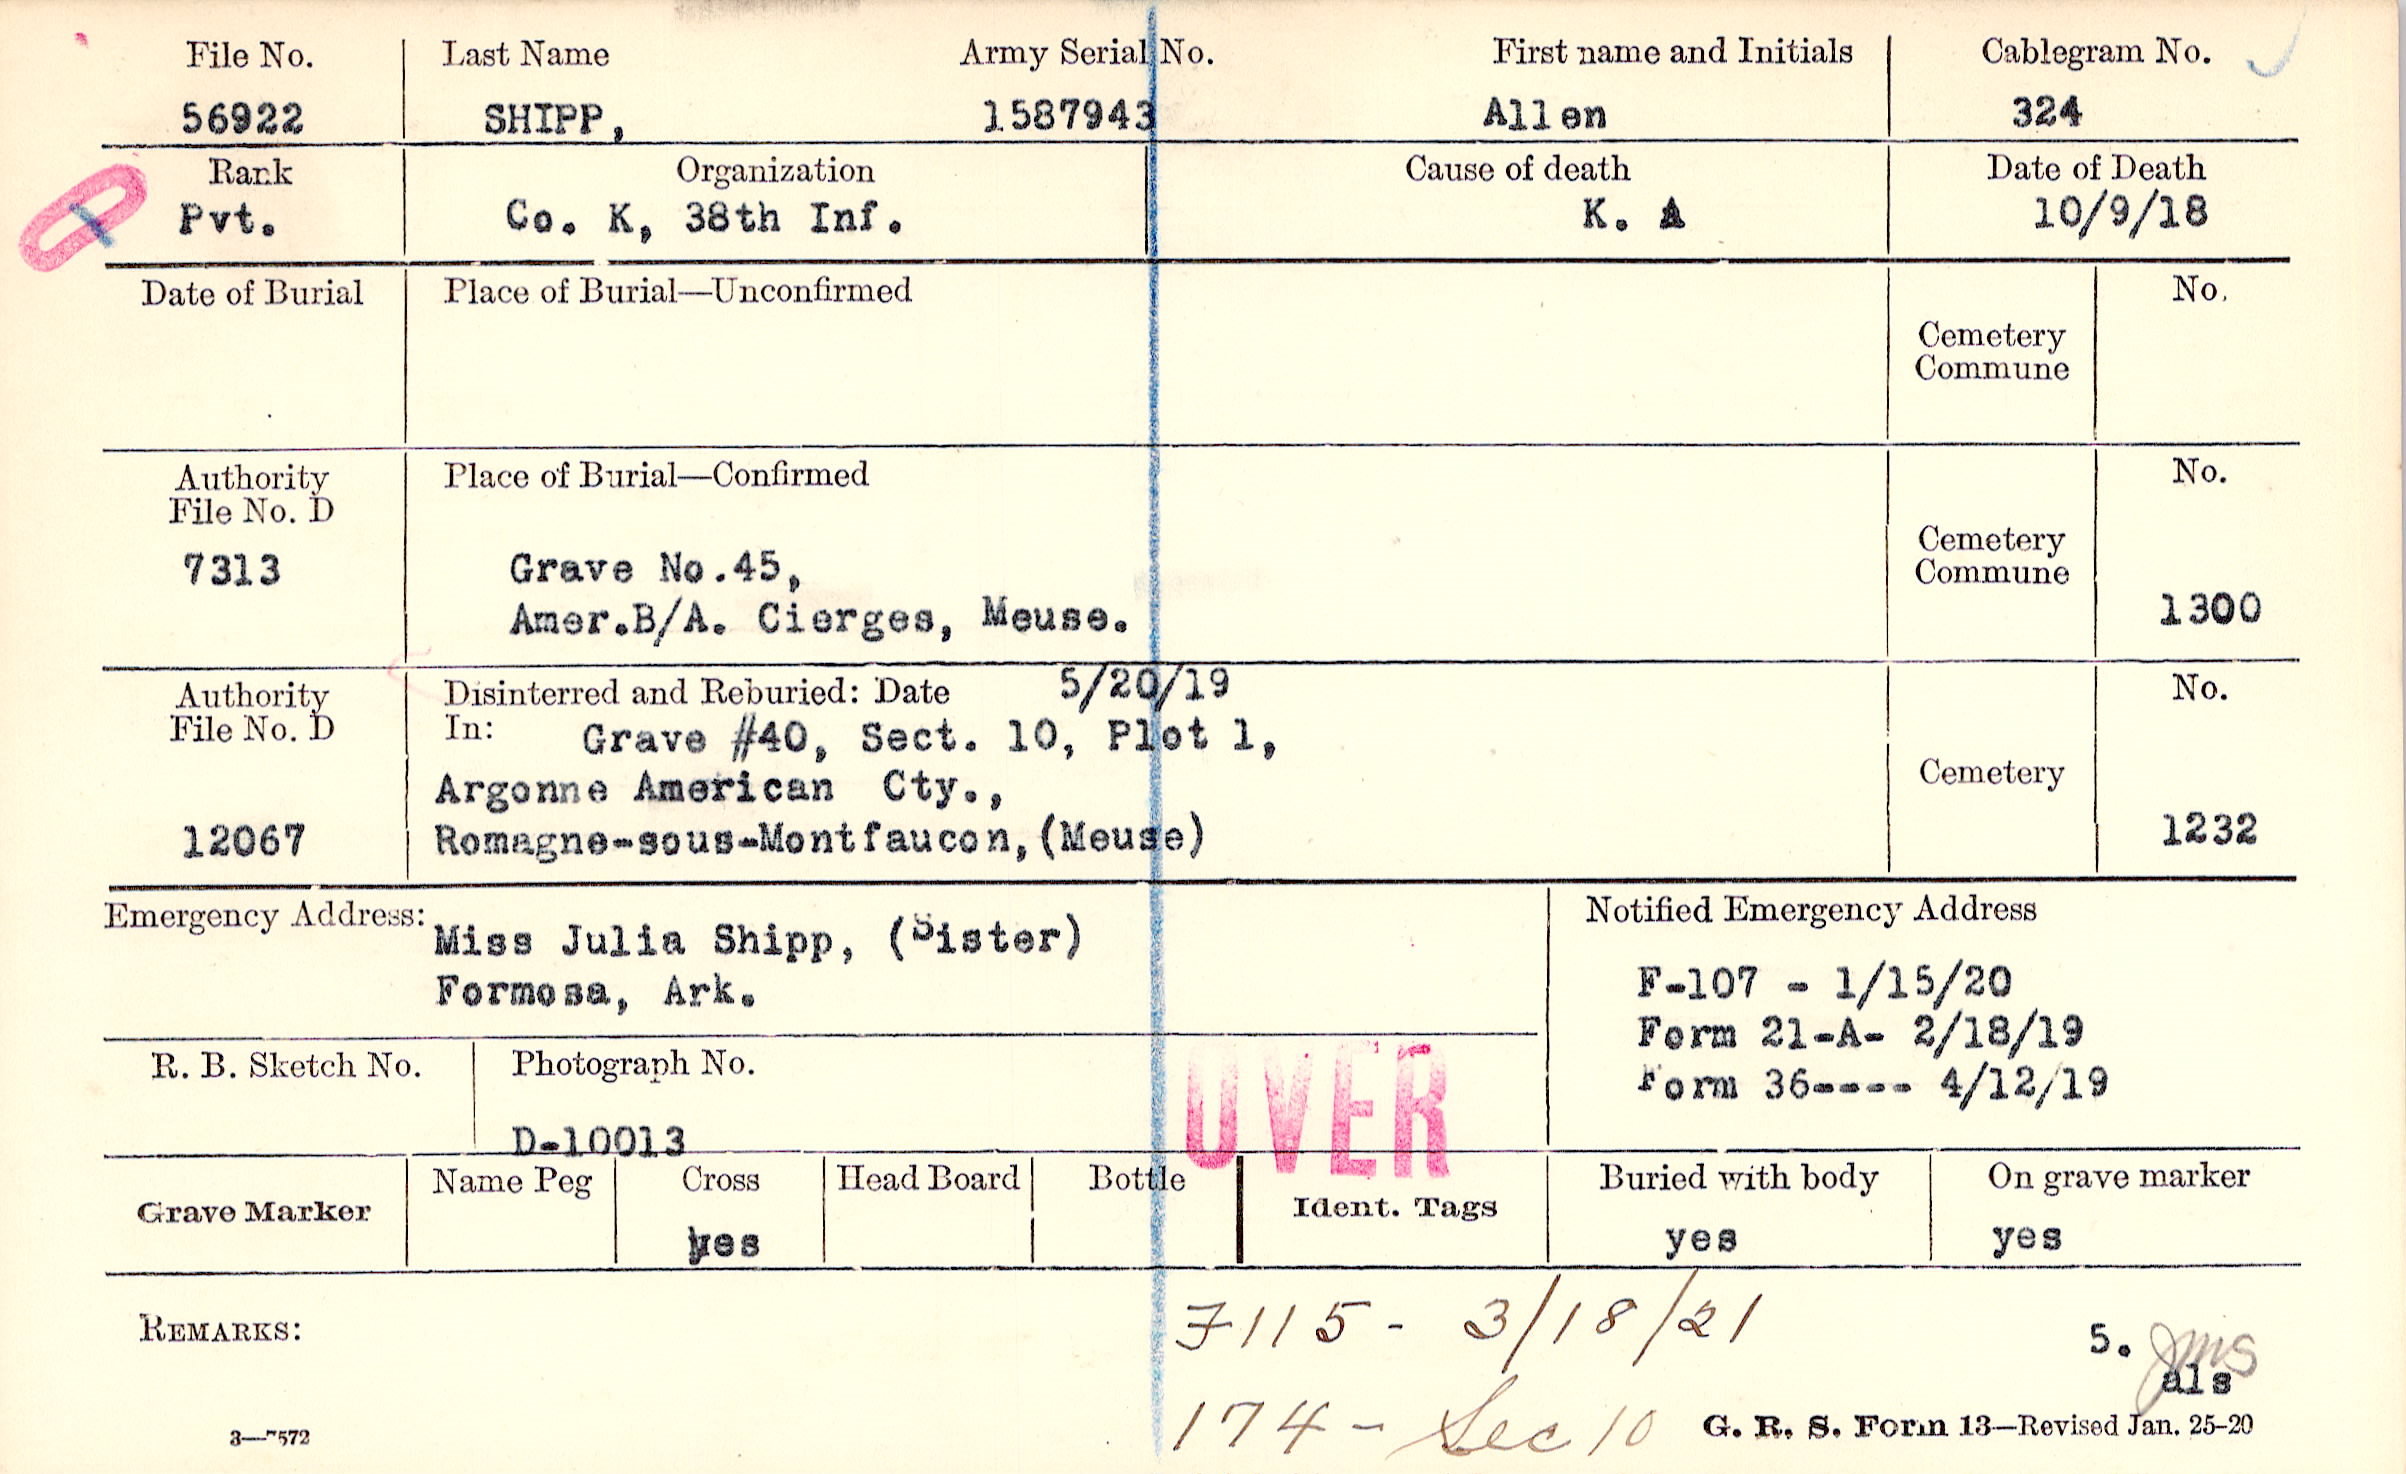 File No. Last Name Army Serial No. First name and Initials Cablegram No.
56922 SHIPP, 1587943 Allen 324
Rank Organization Cause of death Date of Death
Pvt. Co. K, 38th Inf. K. A 10/9/18
Date of Burial Place of Burial—Unconfirmed No.
Cemetery
Commune
Authority Place of Burial—Confirmed No.
File No. D
Cemetery
Commune
7313 Grave No.45,
Amer.B/A. Cierges, Meuse. 1300
Authority Disinterred and Reburied: Date 5/20/19 No.
File No. D In: Grave #40, Sect. 10, Plot 1,
Cemetery
Argonne American Cty.,
12067 Romagne-sous-Montfaucon,(Meuse) 1232
Emergency Address: Miss Julia Shipp, (Sister)
Formosa, Ark.
Notified Emergency Address
F-107 - 1/15/20
Form 21-A- 2/18/19
Form 36---- 4/12/19
R. B. Sketch No. Photograph No.
D-10013
OVER
Grave Marker Name Peg Cross Head Board Bottle Ident. Tags Buried with body On grave marker
yes yes yes
REMARKS: F115 - 3/18/21
5. JMS
als
174 - Sec 10
3—7572 G. R. S. Form 13—Revised Jan. 25-20